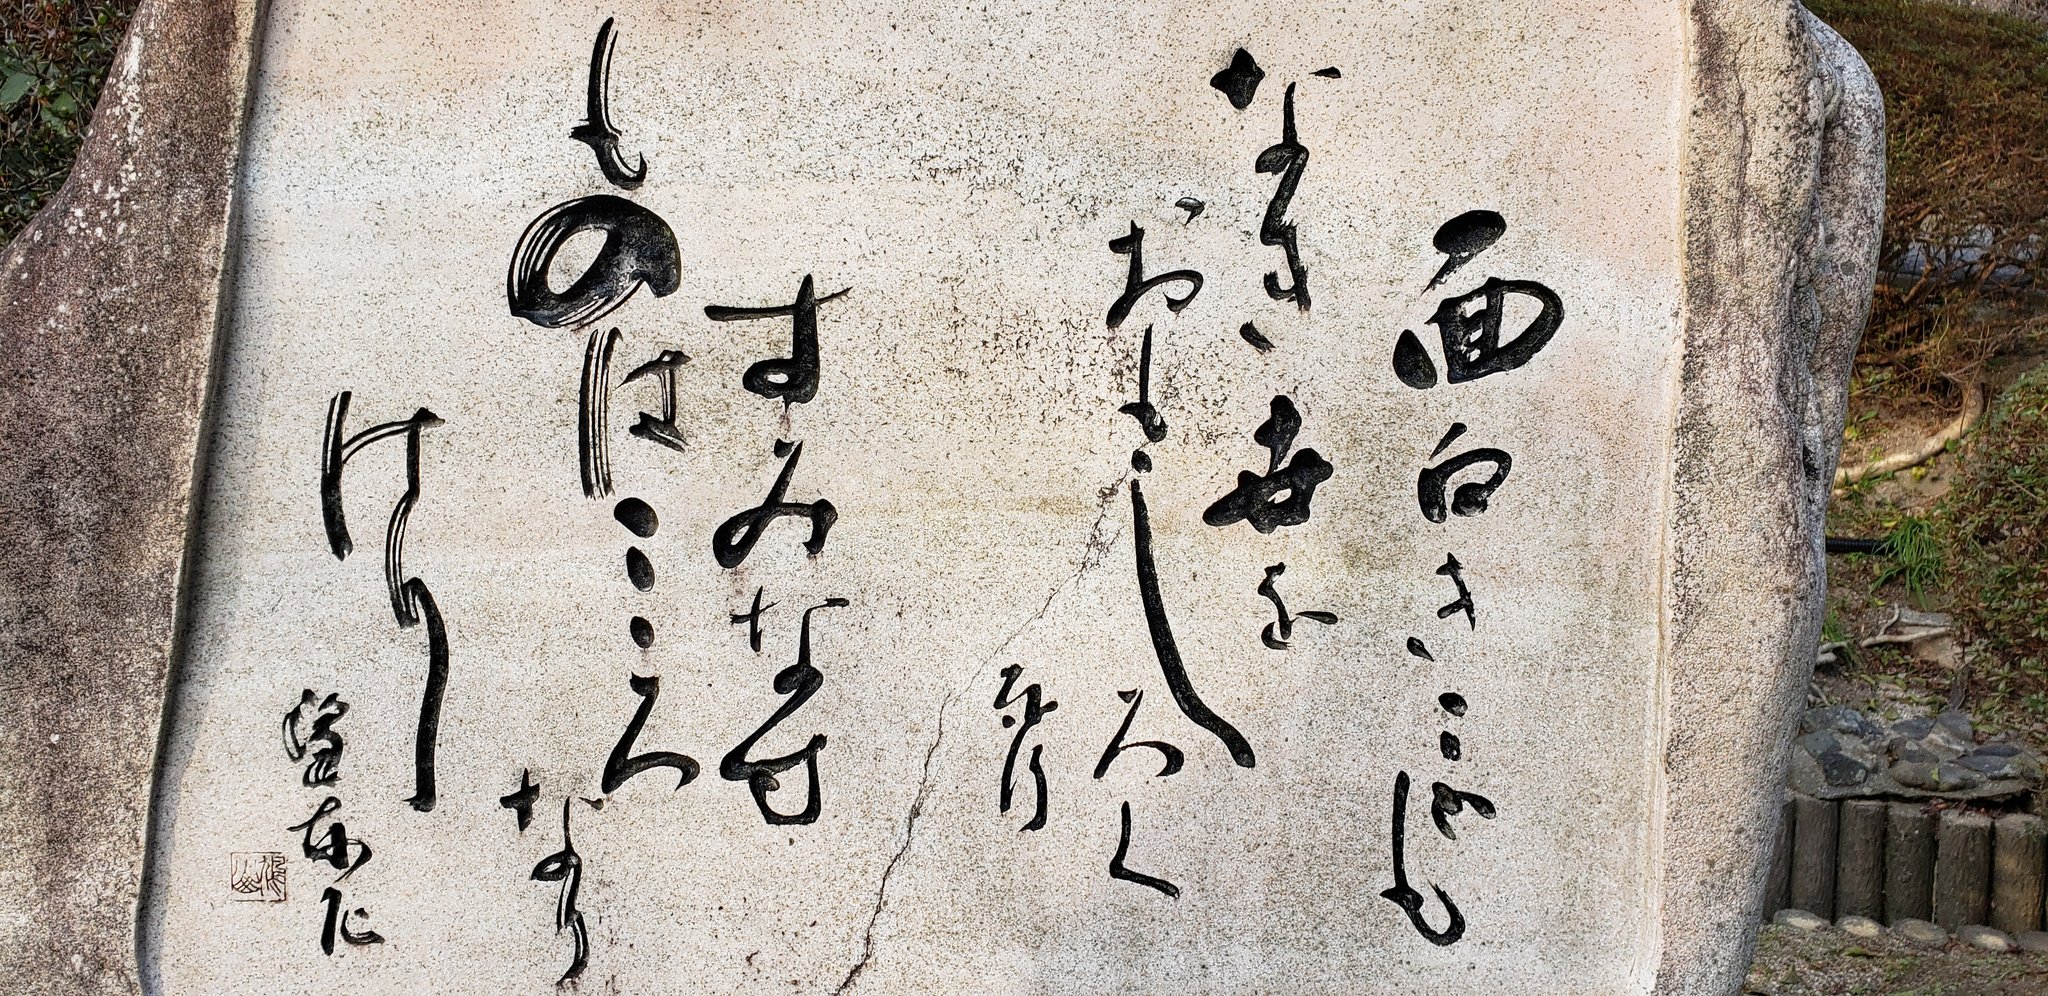 面白きことも
なき世を
おもしろく
東行
すみなす
ものはこゝろなり
けり
望東尼